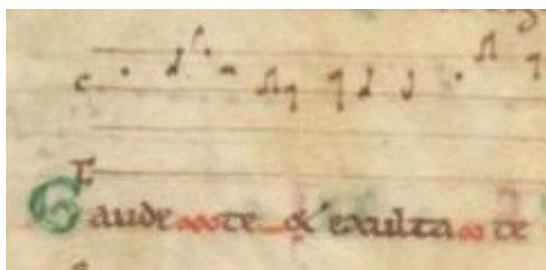 c
F
Gaude te & exulta te